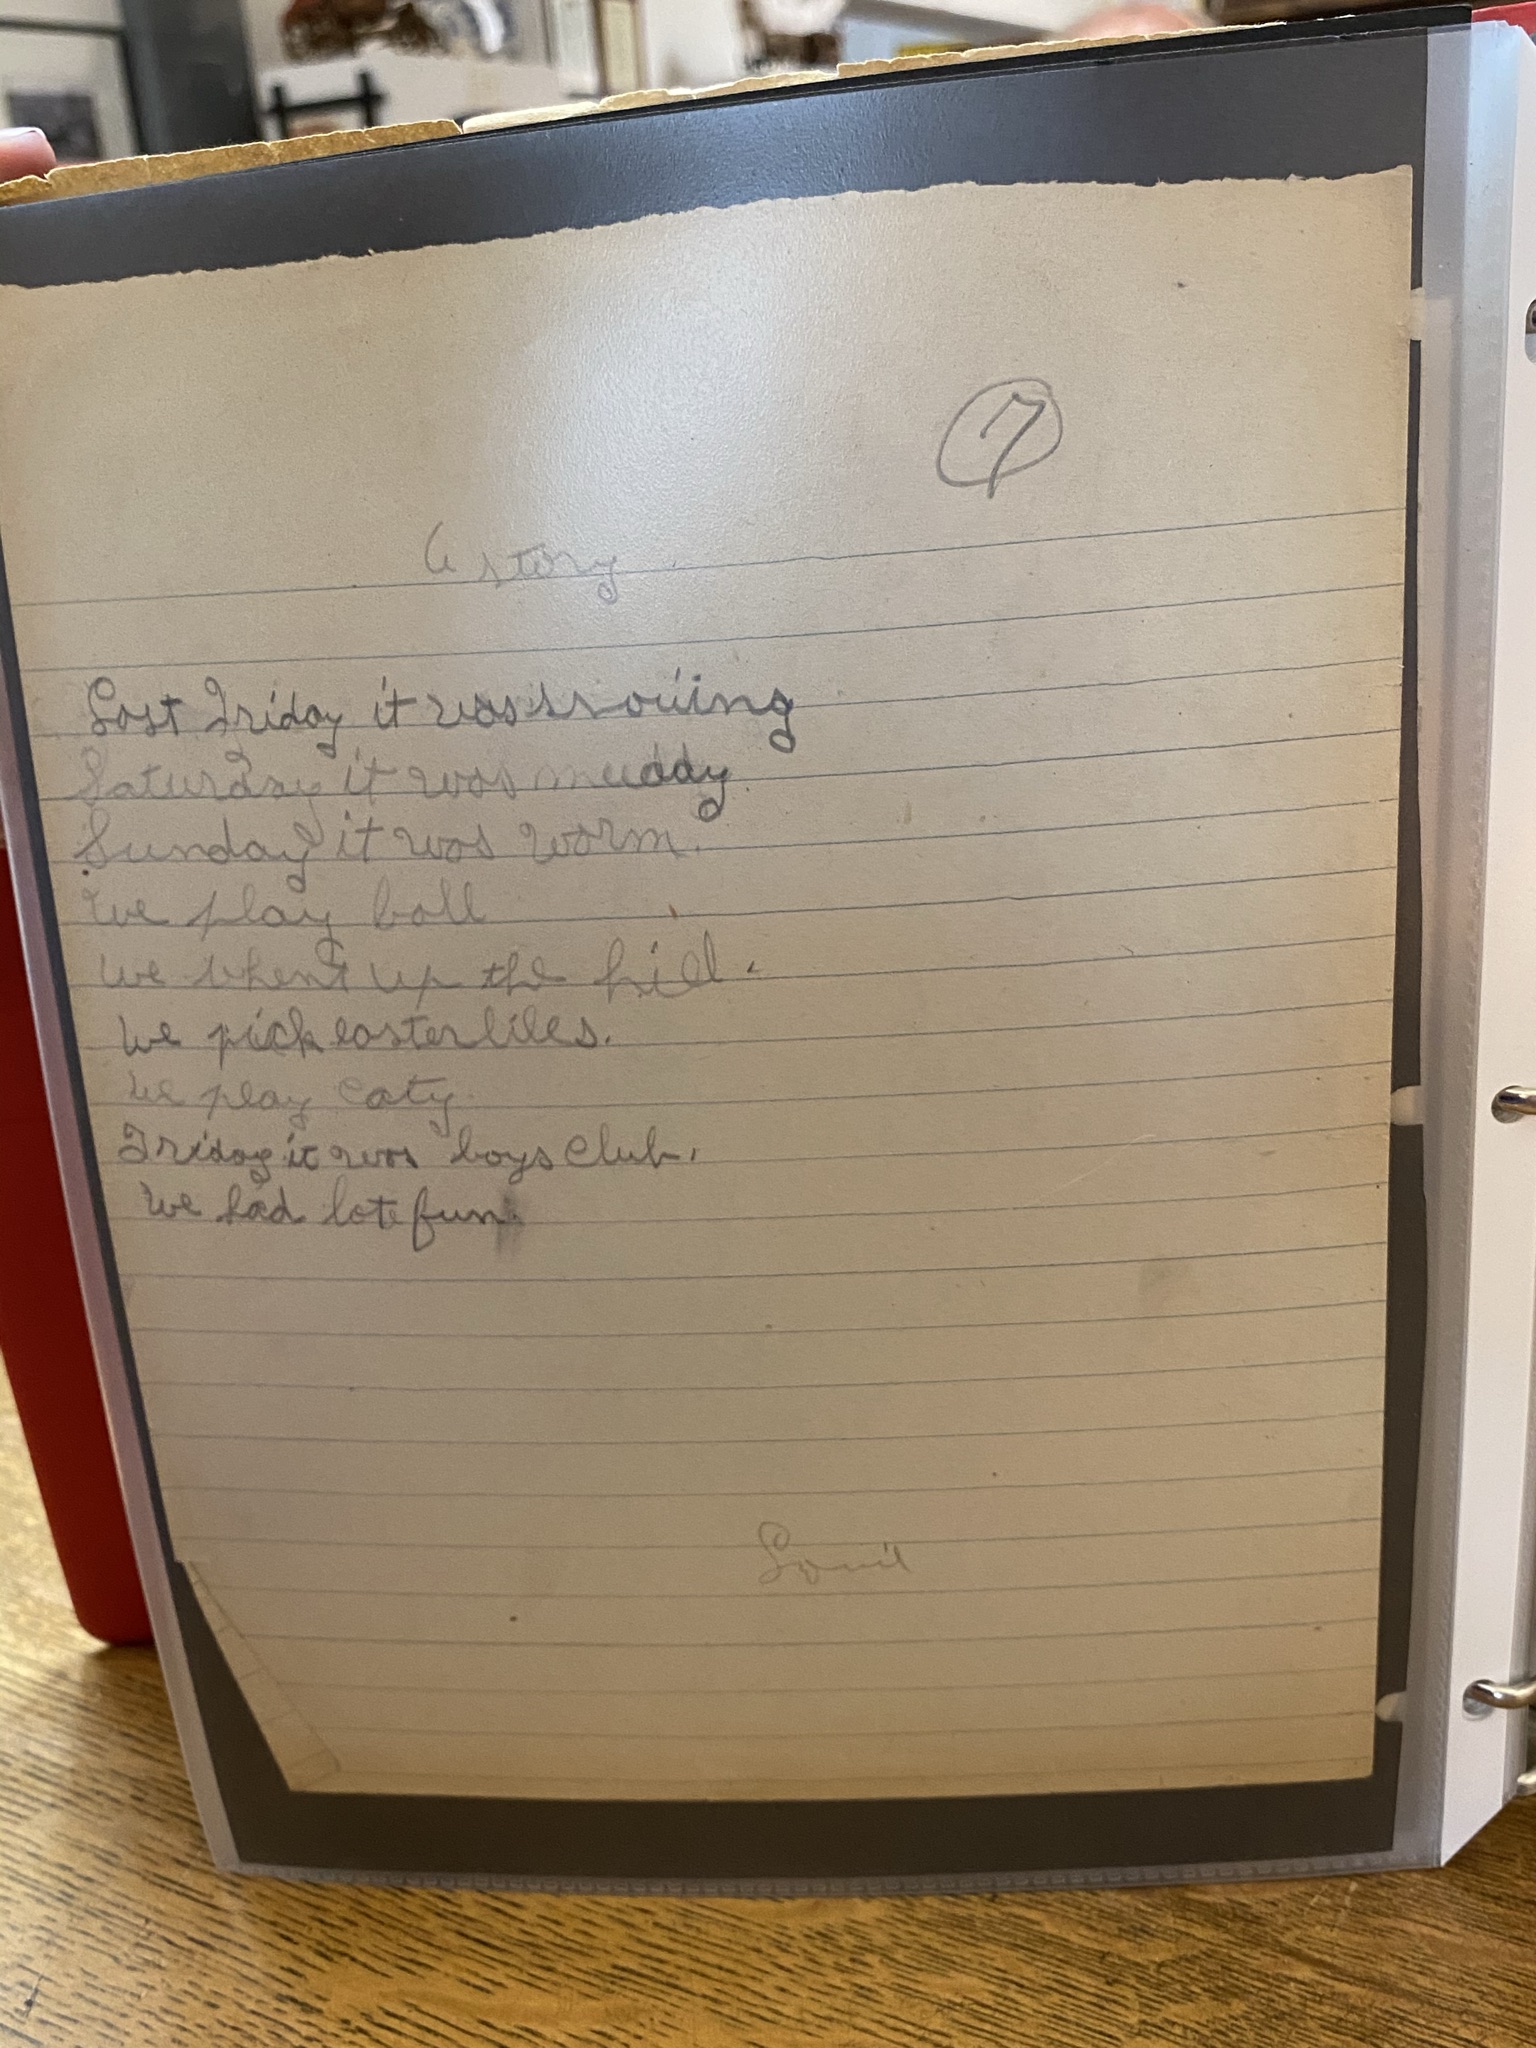 7
A story
Last Friday it was snowing
Saturday it was muddy.
Sunday it was warm.
We play ball
We whent up the hill.
We pick easter liles.
We play caty.
Friday it was boys club.
We had lote fun.